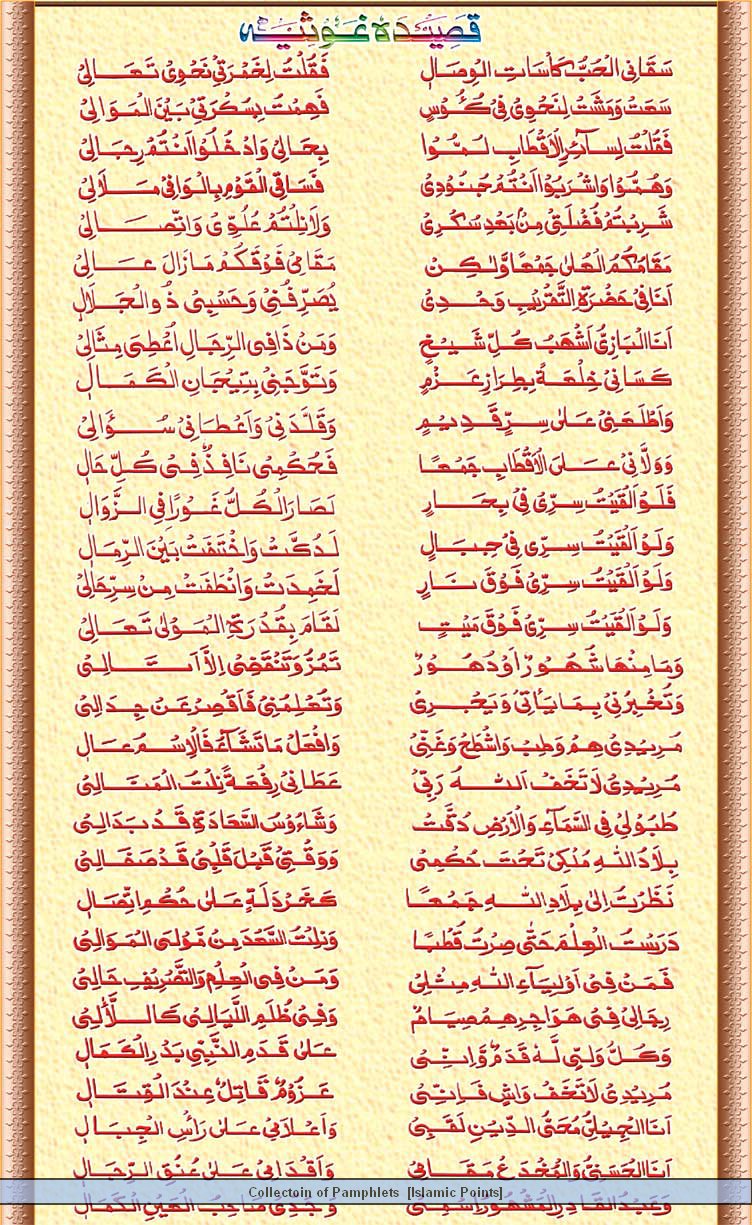 قصیدہ غوثیہ
سَقَانِی الْحُبُّ كَأْسَاتِ الْوِصَالِ فَقُلْتُ لِخَمْرَتِیْ نَحْوِیْ تَعَالِیْ
سَعَتْ وَمَشَتْ لِنَحْوِیْ فِیْ كُئُوْسٍ فَهِمْتُ بِسُكْرَتِیْ بَیْنَ الْمَوَالِیْ
فَقُلْتُ لِسَآئِرِ الْاَقْطَابِ لُمُّوْا بِحَالِیْ وَادْخُلُوْا اَنْتُمْ رِجَالِیْ
وَهُمُّوْا وَاشْرَبُوْا اَنْتُمْ جُنُوْدِیْ فَسَاقِی الْقَوْمِ بِالْوَافِیْ مَلَالِیْ
شَرِبْتُمْ فُضْلَتِیْ مِنْ بَعْدِ سُكْرِیْ وَلَا نِلْتُمْ عُلُوِّیْ وَاتِّصَالِیْ
مَقَامُكُمُ الْعُلٰی جَمْعًا وَّلٰكِنْ مَقَامِیْ فَوْقَكُمْ مَازَالَ عَالِیْ
اَنَا فِیْ حَضْرَةِ التَّقْرِیْبِ وَحْدِیْ یُصَرِّفُنِیْ وَحَسْبِیْ ذُو الْجَلَالِ
اَنَا الْبَازِیُّ اَشْهَبُ كُلِّ شَیْخٍ وَمَنْ ذَا فِی الرِّجَالِ اُعْطِیَ مِثَالِیْ
كَسَانِیْ خِلْعَةً بِطِرَازِ عَزْمٍ وَتَوَّجَنِیْ بِتِیْجَانِ الْكَمَالِ
وَاَطْلَعَنِیْ عَلٰی سِرٍّ قَدِیْمٍ وَقَلَّدَنِیْ وَاَعْطَانِیْ سُؤَالِیْ
وَوَلَّانِیْ عَلَی الْاَقْطَابِ جَمْعًا فَحُكْمِیْ نَافِذٌ فِیْ كُلِّ حَالٍ
فَلَوْ اَلْقَیْتُ سِرِّیْ فِیْ بِحَارٍ لَصَارَ الْكُلُّ غَوْرًا فِی الزَّوَالِ
وَلَوْ اَلْقَیْتُ سِرِّیْ فِیْ جِبَالٍ لَدُكَّتْ وَاخْتَفَتْ بَیْنَ الرِّمَالِ
وَلَوْ اَلْقَیْتُ سِرِّیْ فَوْقَ نَارٍ لَخَمِدَتْ وَانْطَفَتْ مِنْ سِرِّ حَالِیْ
وَلَوْ اَلْقَیْتُ سِرِّیْ فَوْقَ مَیْتٍ لَقَامَ بِقُدْرَةِ الْمَوْلٰی تَعَالِیْ
وَمَا مِنْهَا شُهُوْرٌ اَوْ دُهُوْرٌ تَمُرُّ وَتَنْقَضِیْ اِلَّا اَتَالِیْ
وَتُخْبِرُنِیْ بِمَا یَاْتِیْ وَیَجْرِیْ وَتُعْلِمُنِیْ فَاَقْصِرْ عَنْ جِدَالِیْ
مُرِیْدِیْ هِمْ وَطِبْ وَاشْطَحْ وَغَنِّیْ وَافْعَلْ مَا تَشَآءُ فَالْاِسْمُ عَالٍ
مُرِیْدِیْ لَا تَخَفْ اَللهُ رَبِّیْ عَطَانِیْ رِفْعَةً نِلْتُ الْمَنَالِیْ
طُبُوْلِیْ فِی السَّمَآءِ وَالْاَرْضِ دُقَّتْ وَشَاءُوْسُ السَّعَادَةِ قَدْ بَدَالِیْ
بِلَادُ اللهِ مُلْكِیْ تَحْتَ حُكْمِیْ وَوَقْتِیْ قَبْلَ قَلْبِیْ قَدْ صَفَالِیْ
نَظَرْتُ اِلٰی بِلَادِ اللهِ جَمْعًا كَخَرْدَلَةٍ عَلٰی حُكْمِ اتِّصَالِ
دَرَسْتُ الْعِلْمَ حَتّٰی صِرْتُ قُطْبًا وَنِلْتُ السَّعْدَ مِنْ مَّوْلَی الْمَوَالِیْ
فَمَنْ فِیْ اَوْلِیَآءِ اللهِ مِثْلِیْ وَمَنْ فِی الْعِلْمِ وَالتَّصْرِیْفِ حَالِیْ
رِجَالِیْ فِیْ هَوَاجِرِهِمْ صِیَامٌ وَفِیْ ظُلَمِ اللَّیَالِیْ كَاللَّاٰلِیْ
وَكُلُّ وَلِیٍّ لَهٗ قَدَمٌ وَّاِنِّیْ عَلٰی قَدَمِ النَّبِیِّ بَدْرِ الْكَمَالِ
مُرِیْدِیْ لَا تَخَفْ وَاشٍ فَاِنِّیْ عَزُوْمٌ قَاتِلٌ عِنْدَ الْقِتَالِ
اَنَا الْجِیْلِیُّ مُحْیُ الدِّیْنِ لَقَبِیْ وَاَعْلَامِیْ عَلٰی رَأْسِ الْجِبَالِ
اَنَا الْحَسَنِیُّ وَالْمُخْدَعُ مَقَامِیْ وَاَقْدَامِیْ عَلٰی عُنُقِ الرِّجَالِ
وَعَبْدُ الْقَادِرِ الْمَشْهُوْرُ اِسْمِیْ وَجَدِّیْ صَاحِبُ الْعَیْنِ الْكَمَالِ
Collectoin of Pamphlets [Islamic Points]